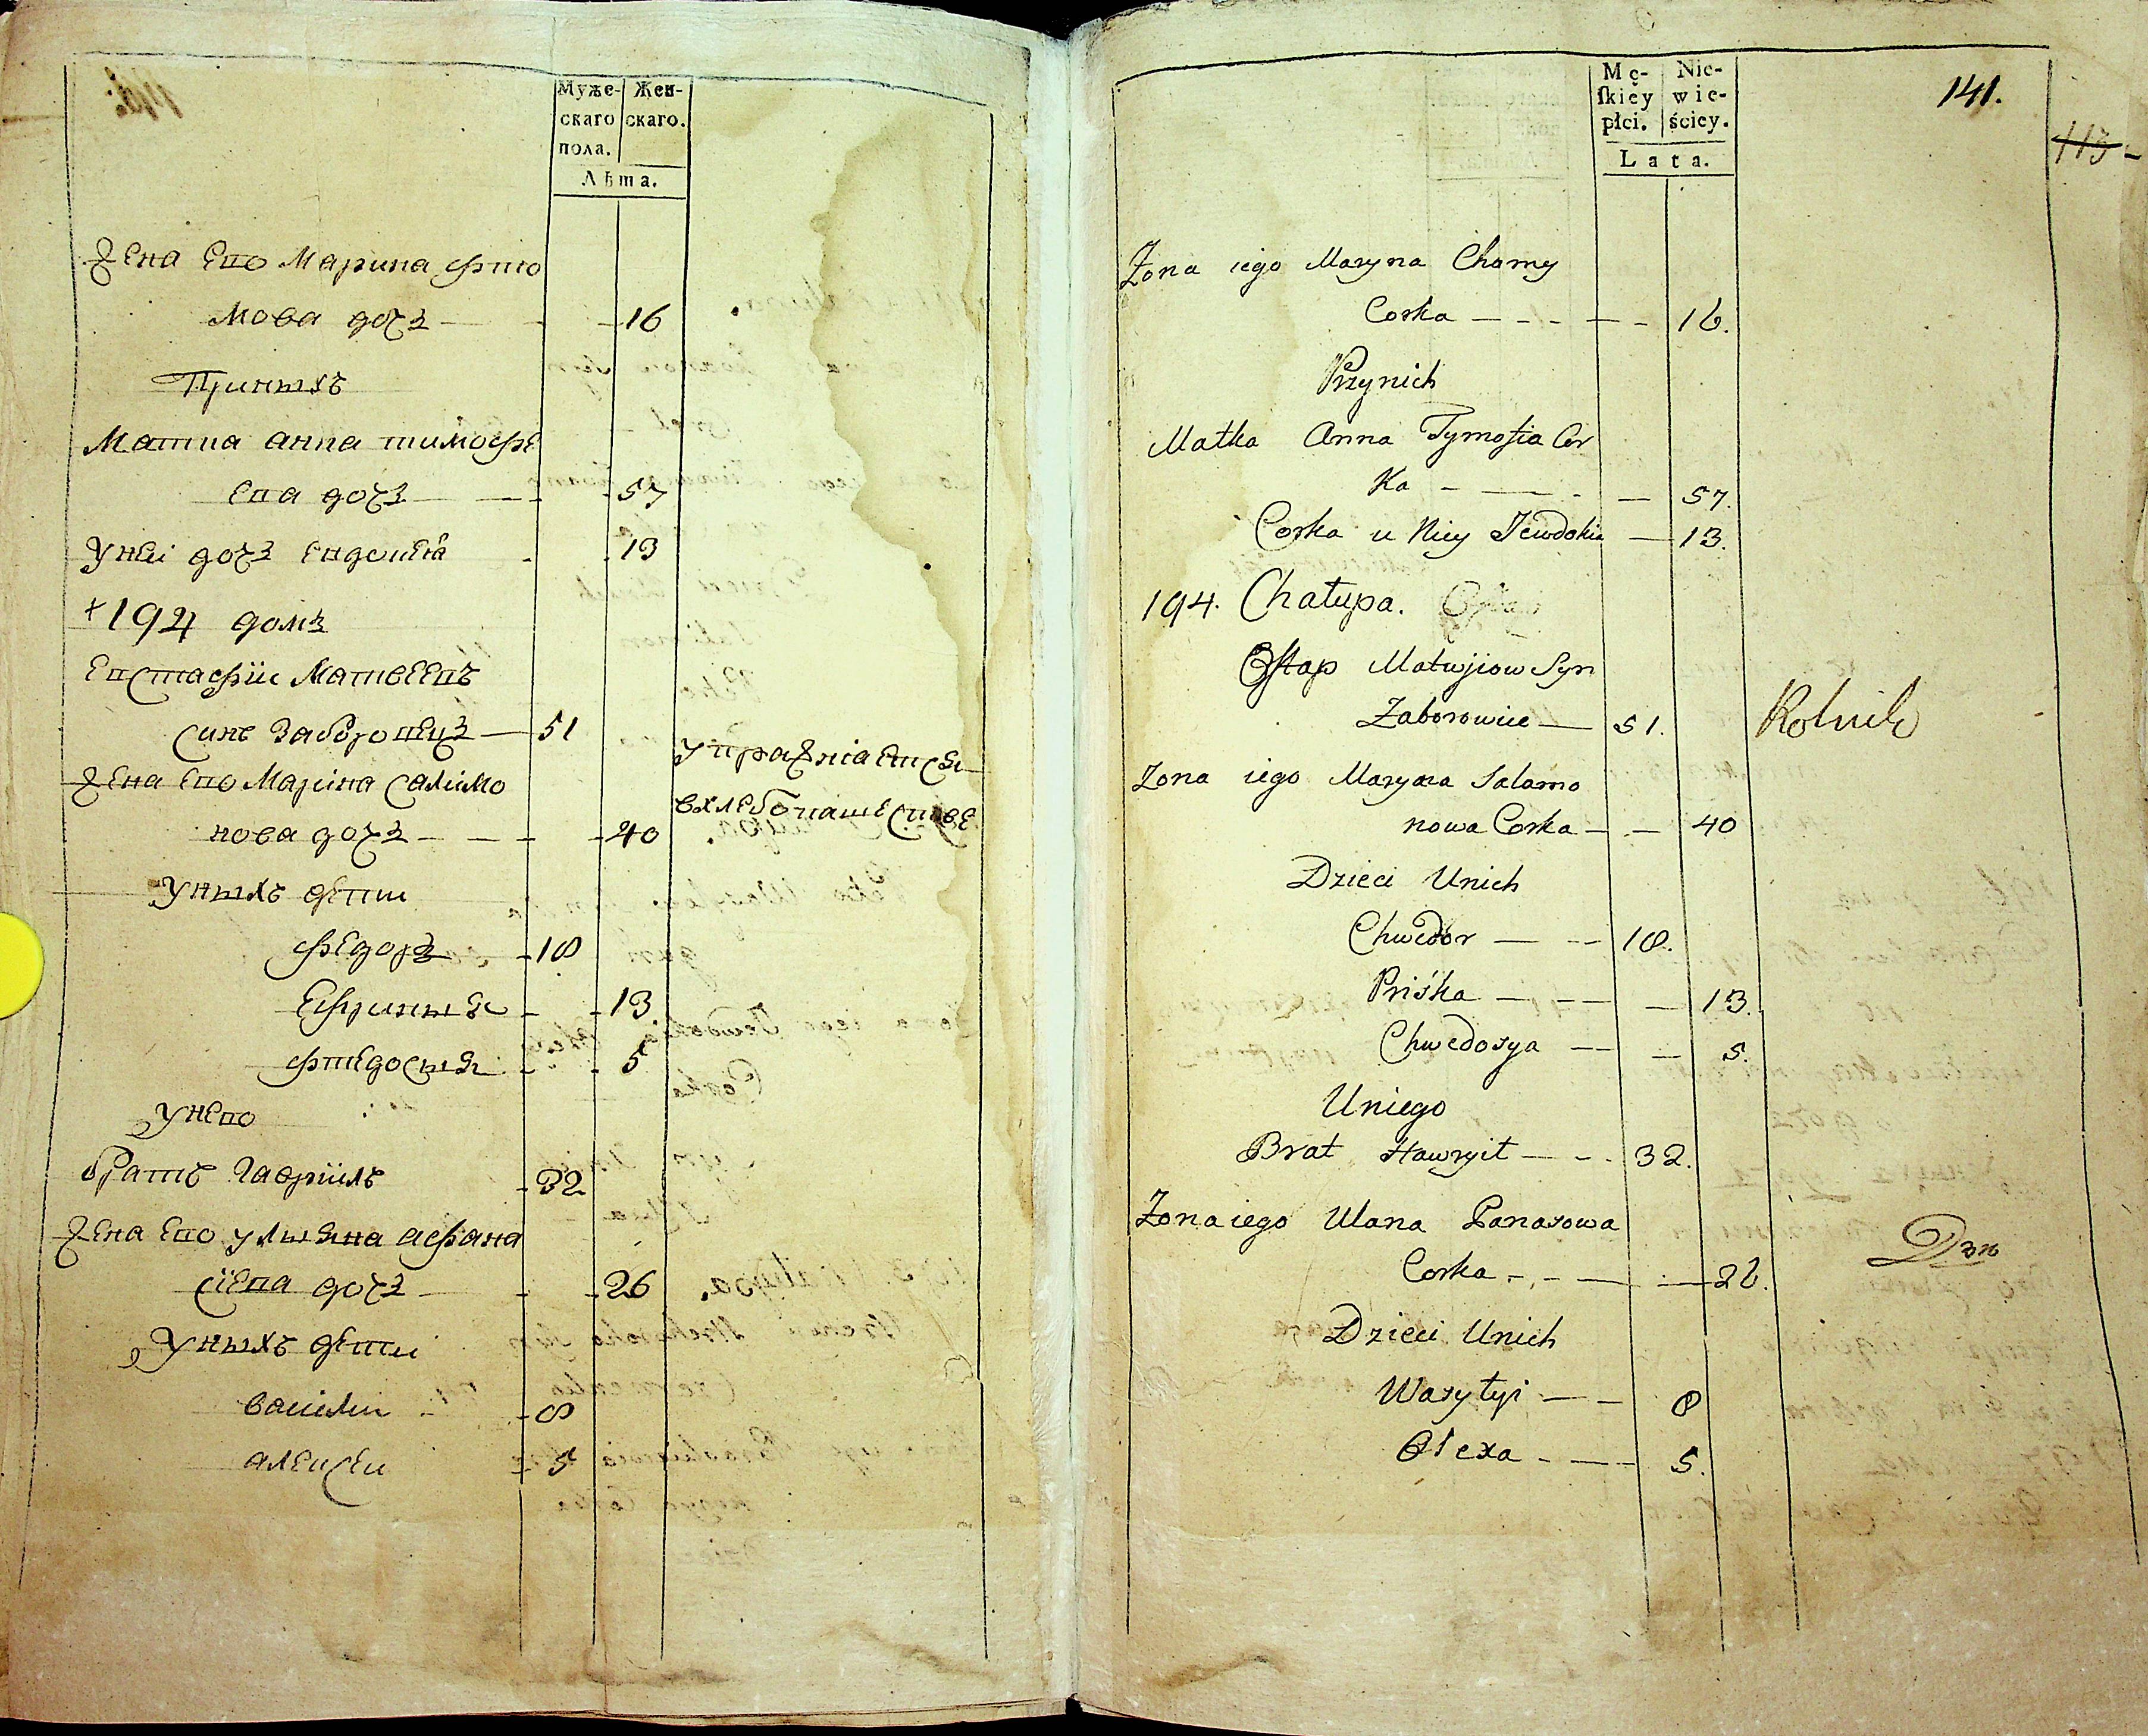 Муже-
скаго
пола.
Жен-
скаго.
Лѣта.
жена его Марина фто
мова дочъ — 16
Приныхъ
Матка анна тимофе
ева дочъ — 57
Унеи дочъ Евдокея 13
+194 домъ
Евстафiи Матвеевъ
синъ Заборовецъ — 51
упражнiаетсья
вхлебопашестве
жена его Марiна салiмо
нова дочъ — 40
Уныхъ дети
федоръ 18
Ефриньья 13
фтедосья 5
Унего
братъ гаврiилъ 32
жена его ульяна афана
сiева дочъ 26
Уныхъ дети
васiли 8
алексеи 5
Mę-
ſkiey
płci.
Nie-
wie-
ściey.
Lata.
141.
113 -
Zona iego Maryna Chomy
Corka — 16.
Przynich
Matka Anna Tymofia Cor
ka — 57.
Corka u Niey Jewdokia — 13.
194. Chałupa.
Ostap Matwjiow Syn
Zaborowiec — 51.
Rolnik
Zona iego Maryna Salamo
nowa Corka — 40
Dzieci Unich
Chwedor — 18.
Priśka — 13.
Chwedosya — 5.
Uniego
Brat Hawryił — 32.
Zona iego Ulana Panasowa
Corka — 26.
Dzieci Unich
Wasylyi — 8
Olexa — 5.